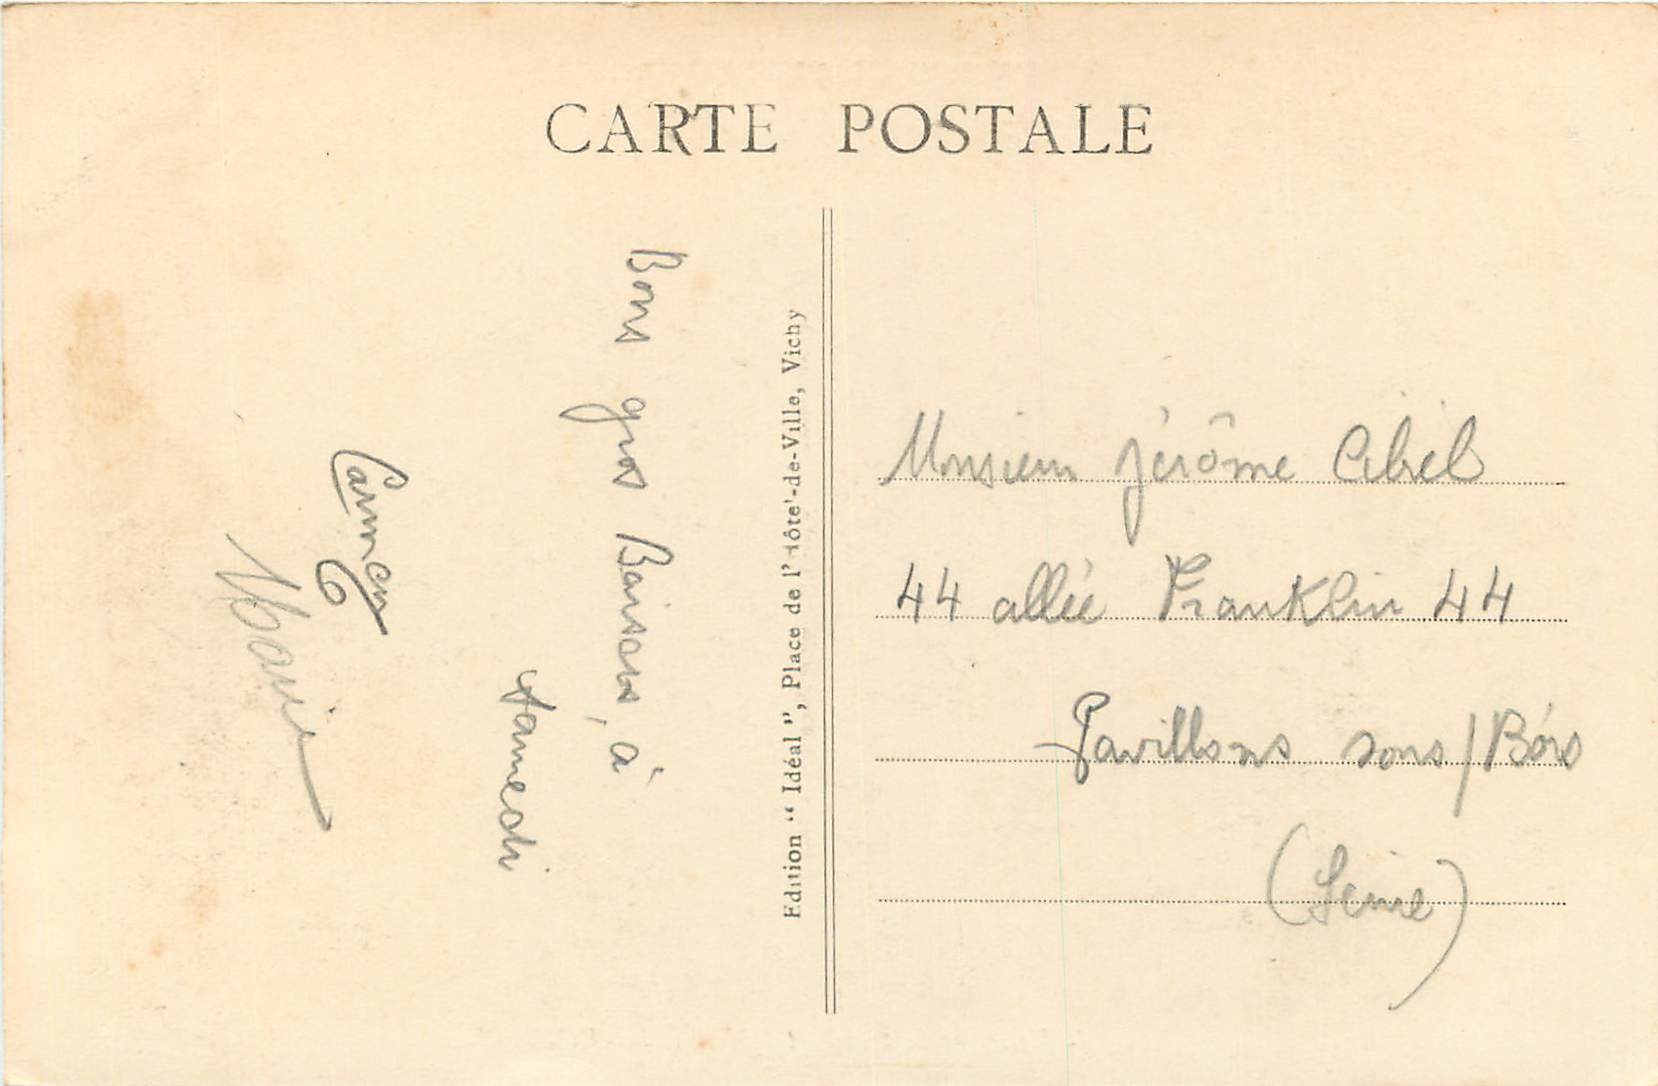 CARTE POSTALE
Bons gros Baisers, à
samedi
Carmen
Marie
Edition "Idéal", Place de l'Hôtel-de-Ville, Vichy
Monsieur Jérôme
44 allée Franklin 44
Pavillons sous/Bois
(Seine)